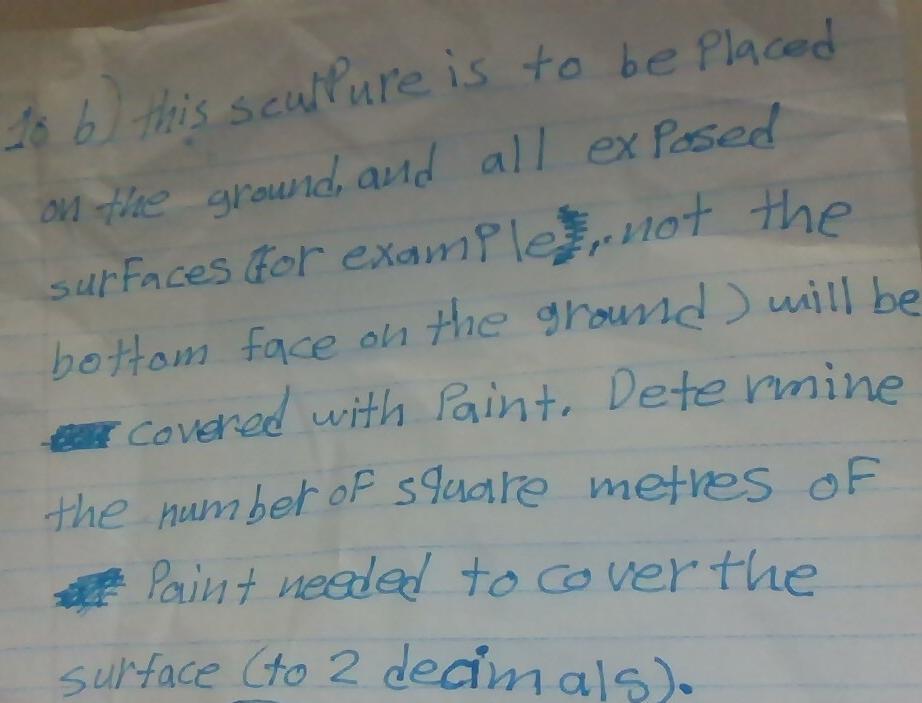 10 b) this sculpture is to be placed
on the ground, and all exposed
surfaces (for example, not the
bottom face on the ground) will be
covered with Paint. Determine
the number of square metres of
Paint needed to cover the
surface (to 2 decimals).